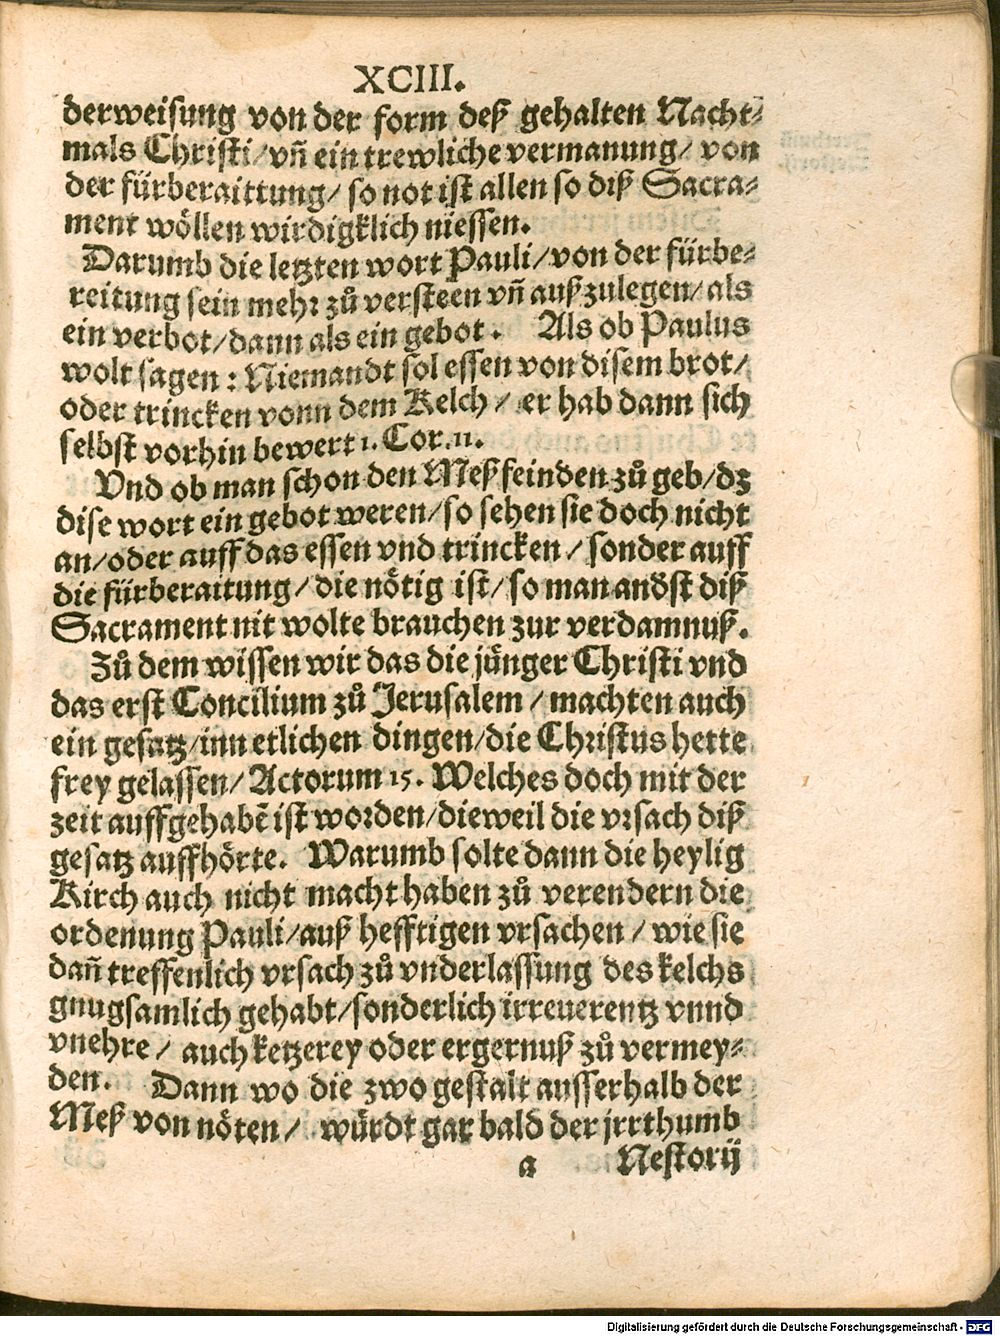 XCIII.
derweisung von der form deß gehalten Nacht⸗
mals Christi/ vñ ein trewliche vermanung/ von
der fürberaittung/ so not ist allen so diß Sacra⸗
ment wöllen wirdigklich niessen.
Darumb die letzten wort Pauli/ von der fürbe⸗
reitung sein mehr zů versteen vñ außzulegen/ als
ein verbot/ dann als ein gebot. Als ob Paulus
wolt sagen: Niemandt sol essen von disem brot/
oder trincken vonn dem Kelch/ er hab dann sich
selbst vorhin bewert 1. Cor. 11.
Vnd ob man schon den Meßfeinden zů geb/ dz
dise wort ein gebot weren/ so sehen sie doch nicht
an/ oder auff das essen vnd trincken/ sonder auff
die fürberaitung/ die nötig ist/ so man andst diß
Sacrament nit wolte brauchen zur verdamnuß.
Zů dem wissen wir das die jünger Christi vnd
das erst Concilium zů Jerusalem/ machten auch
ein gesatz/ inn etlichen dingen/ die Christus hette
frey gelassen/ Actorum 15. Welches doch mit der
zeit auffgehabẽ ist worden/ dieweil die vrsach diß
gesatz auffhörte. Warumb solte dann die heylig
Kirch auch nicht macht haben zů verendern die
ordenung Pauli/ auß hefftigen vrsachen/ wie sie
dañ treffenlich vrsach zů vnderlassung des kelchs
gnugsamlich gehabt/ sonderlich irreuerentz vnnd
vnehre/ auch ketzerey oder ergernuß zů vermey⸗
den. Dann wo die zwo gestalt ausserhalb der
Meß von nöten/ würdt gar bald der jrrthumb
a Nestorij
Digitalisierung gefördert durch die Deutsche Forschungsgemeinschaft - DFG